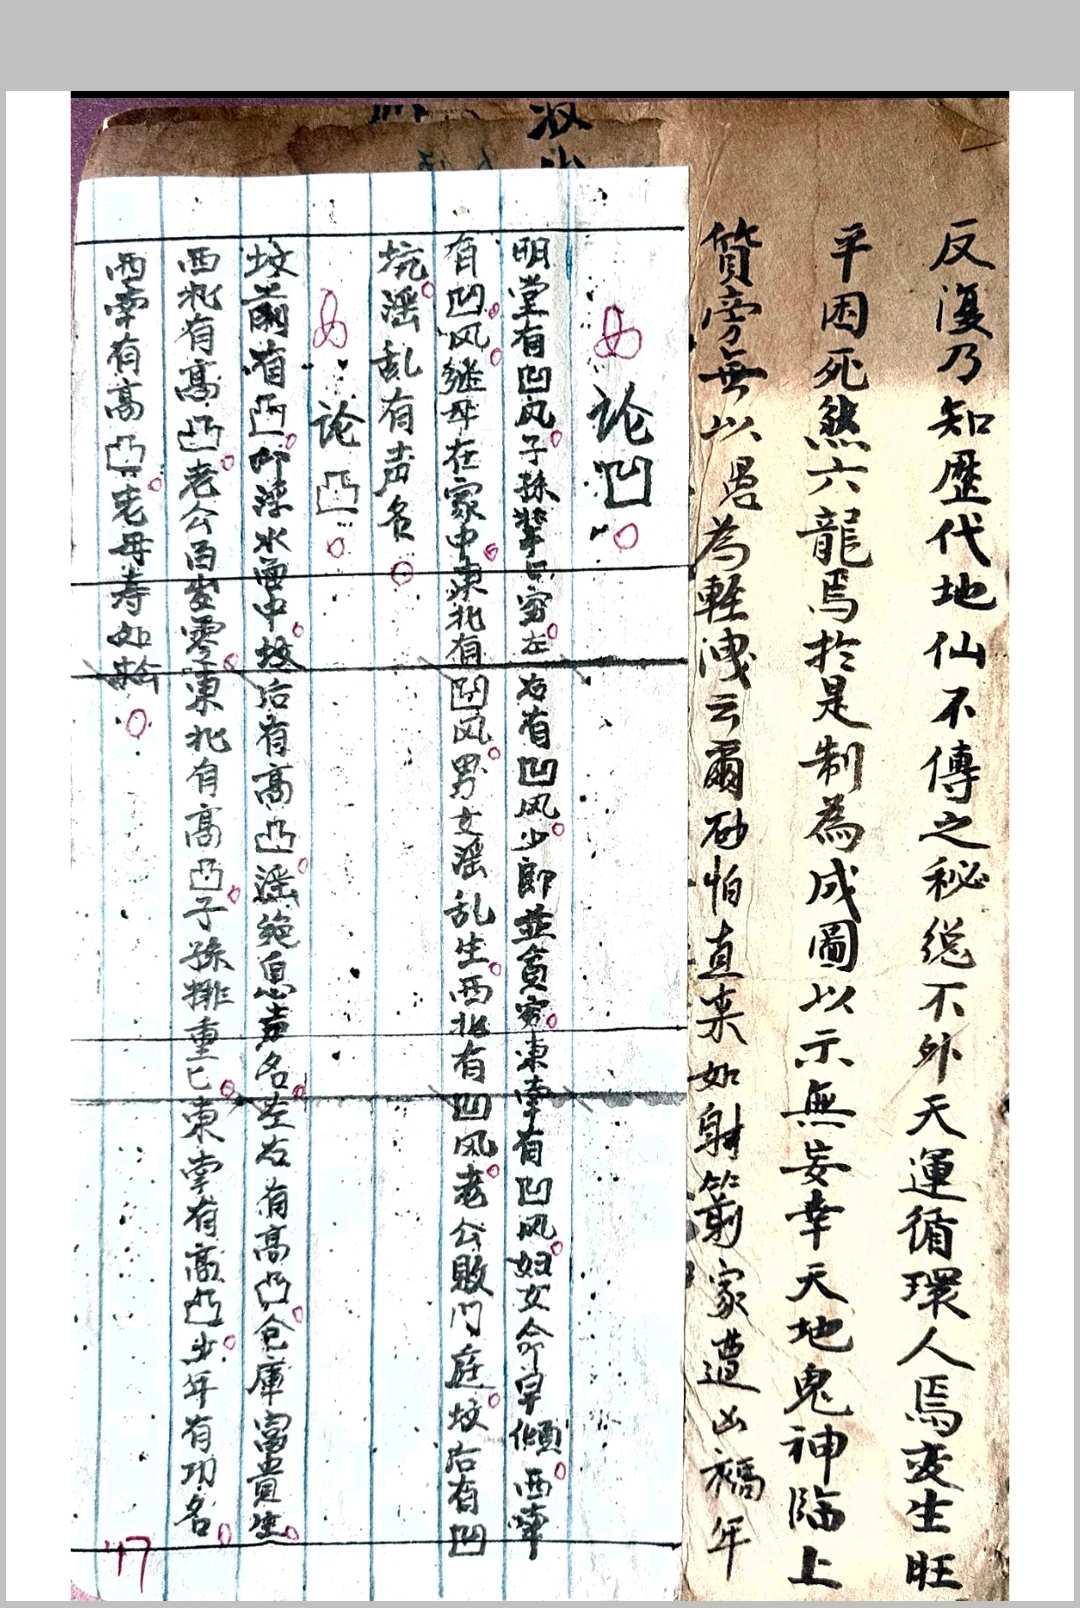 反復乃知歷代地仙不傳之秘總不外天運循環人焉变生旺
平困死然六龍焉於是制為成圖以示無妄幸天地鬼神臨上
質旁無以愚為輕洩云爾砂怕直来如射箭家遭凶禍年
论凹
明堂有凹风子孫輩出穷左右有凹风少郎並貧穷東南有凹风妇女命早傾西南
有凹风继母在家中東北有凹风男女滛乱生西北有凹风老公败门庭坟后有凹
坑滛乱有声名
论凸
坟前有凸叩浮水面中坟后有高凸滛绝息声名左右有高凸仓庫富貴生
西北有高凸老公百岁零東北有高凸子孫排重已東南有高凸少年有功名
西南有高凸老母寿如龄
47